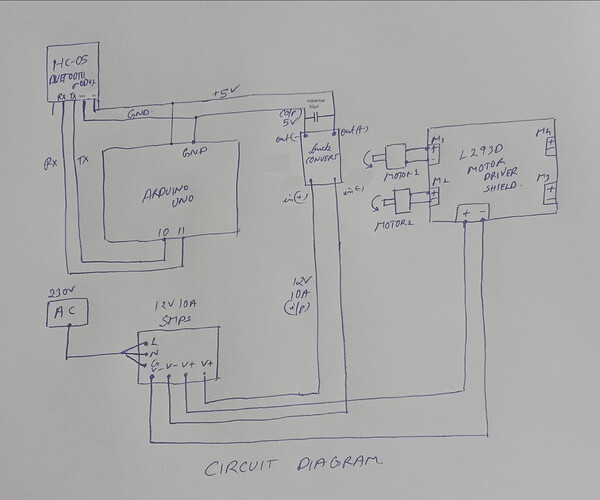 HC-05
BLUETOOTH
MODUL
RX TX - -
+5V
GND
(O/P)
5V
out(-)
out(+)
buck
CONVERT
in(+)
in(-)
RX
TX
GND
ARDUINO
UNO
10 11
M1
+
-
MOTOR1
M2
+
-
MOTOR2
L293D
MOTOR
DRIVER
SHIELD.
M4
+
-
M3
+
-
+ -
12V
10A
(i/p)
230V
AC
12V 10A
SMPS
L
N
G
V- V- V+ V+
CIRCUIT DIAGRAM.